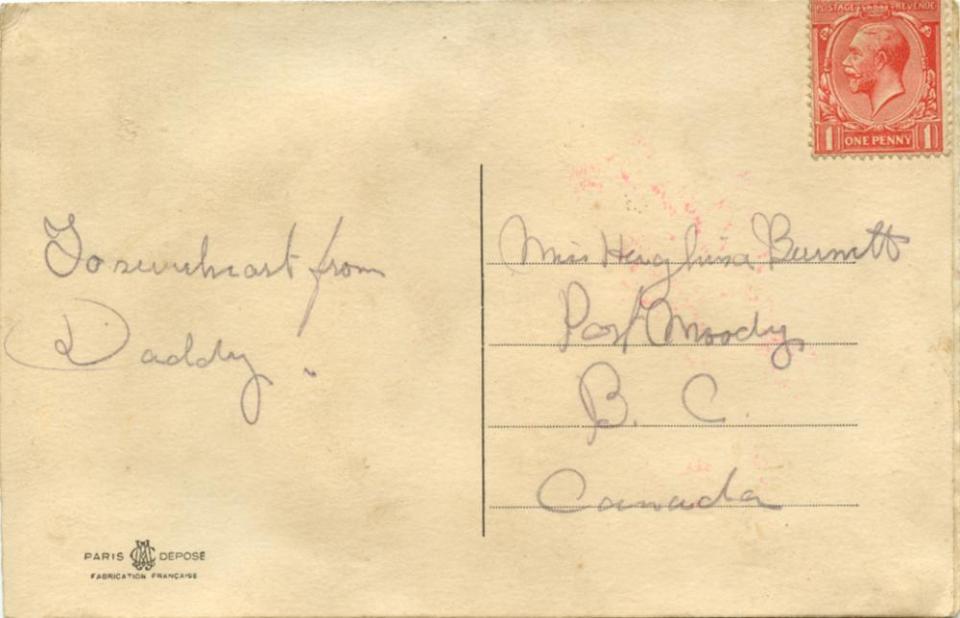 POSTAGE REVENUE
1 ONE PENNY 1
To sweetheart from
Daddy
Miss Hughina Burnett
Port Moody
B. C.
Canada
PARIS DEPOSÉ
FABRICATION FRANÇAISE